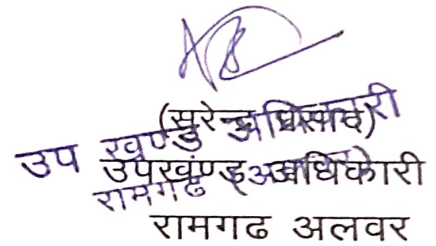 (सुरेन्द्र प्रसाद)
उप खण्ड अधिकारी
उपखंण्ड अधिकारी
रामगढ़ (अलवर)
रामगढ अलवर